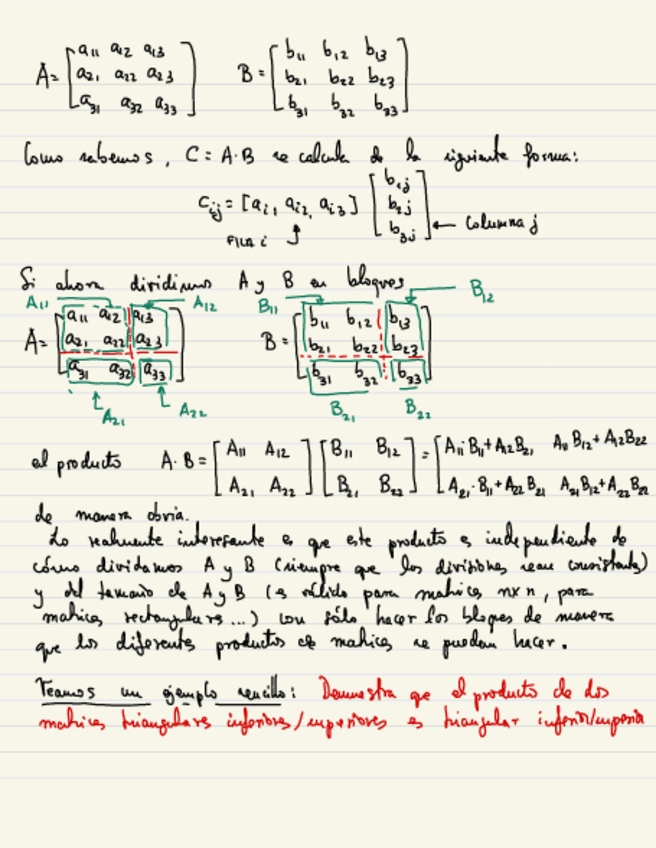 A = [a11 a12 a13
a21 a22 a23
a31 a32 a33]
B = [b11 b12 b13
b21 b22 b23
b31 b32 b33]
Como sabemos, C = A·B se calcula de la siguiente forma:
cij = [ai1, ai2, ai3] [b1j
b2j
b3j] ← columna j
FILA i
Si ahora dividimos A y B en bloques
A11 A12 B11 B12
A = [a11 a12 a13
a21 a22 a23
a31 a32 a33]
A21 A22
B = [b11 b12 b13
b21 b22 b23
b31 b32 b33]
B21 B22
el producto A·B = [A11 A12
A21 A22] [B11 B12
B21 B22] = [A11·B11+A12B21 A11B12+A12B22
A21·B11+A22B21 A21B12+A22B22
de manera obvia.
Lo realmente interesante es que este producto es independiente de
cómo dividamos A y B (siempre que las divisiones sean consistentes)
y del tamaño de A y B (es válido para matrices nxn, para
matrices rectangulares...) con sólo hacer los bloques de manera
que los diferentes productos de matrices se puedan hacer.
Veamos un ejemplo sencillo: Demuestra que el producto de dos
matrices triangulares inferiores/superiores es triangular inferior/superior